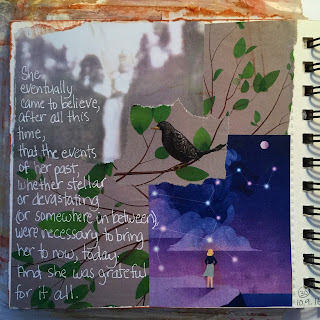 She
eventually
came to believe,
after all this
time,
that the events
of her past,
whether stellar
or devastating
(or somewhere in between),
were necessary to bring
her to now, today.
And she was grateful
for it all.